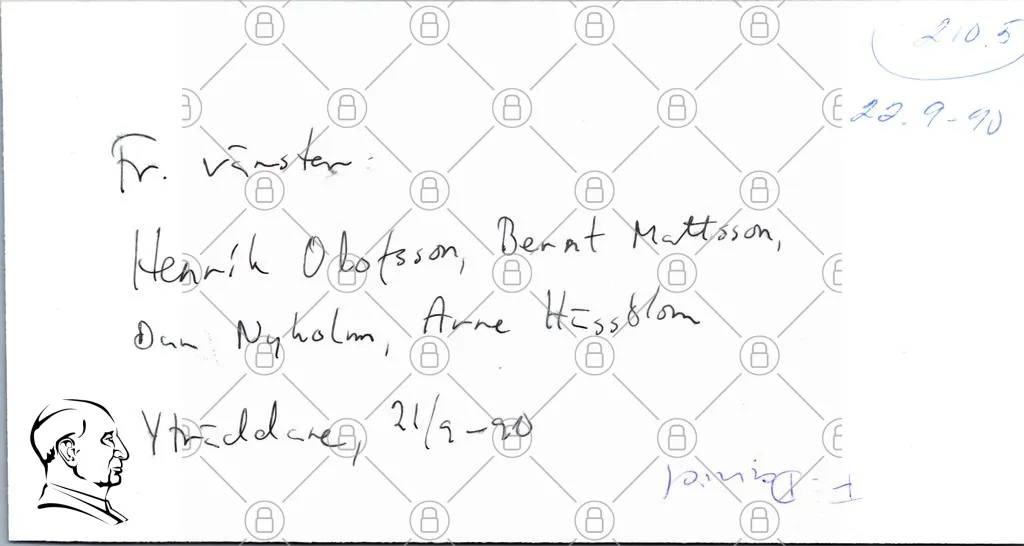 210.5
22.9-90
Fr. vänster:
Henrik Olofsson, Bernt Mattsson,
Dan Nyholm, Arne Hässblom
Yträddare, 21/9-90
F: Daniel